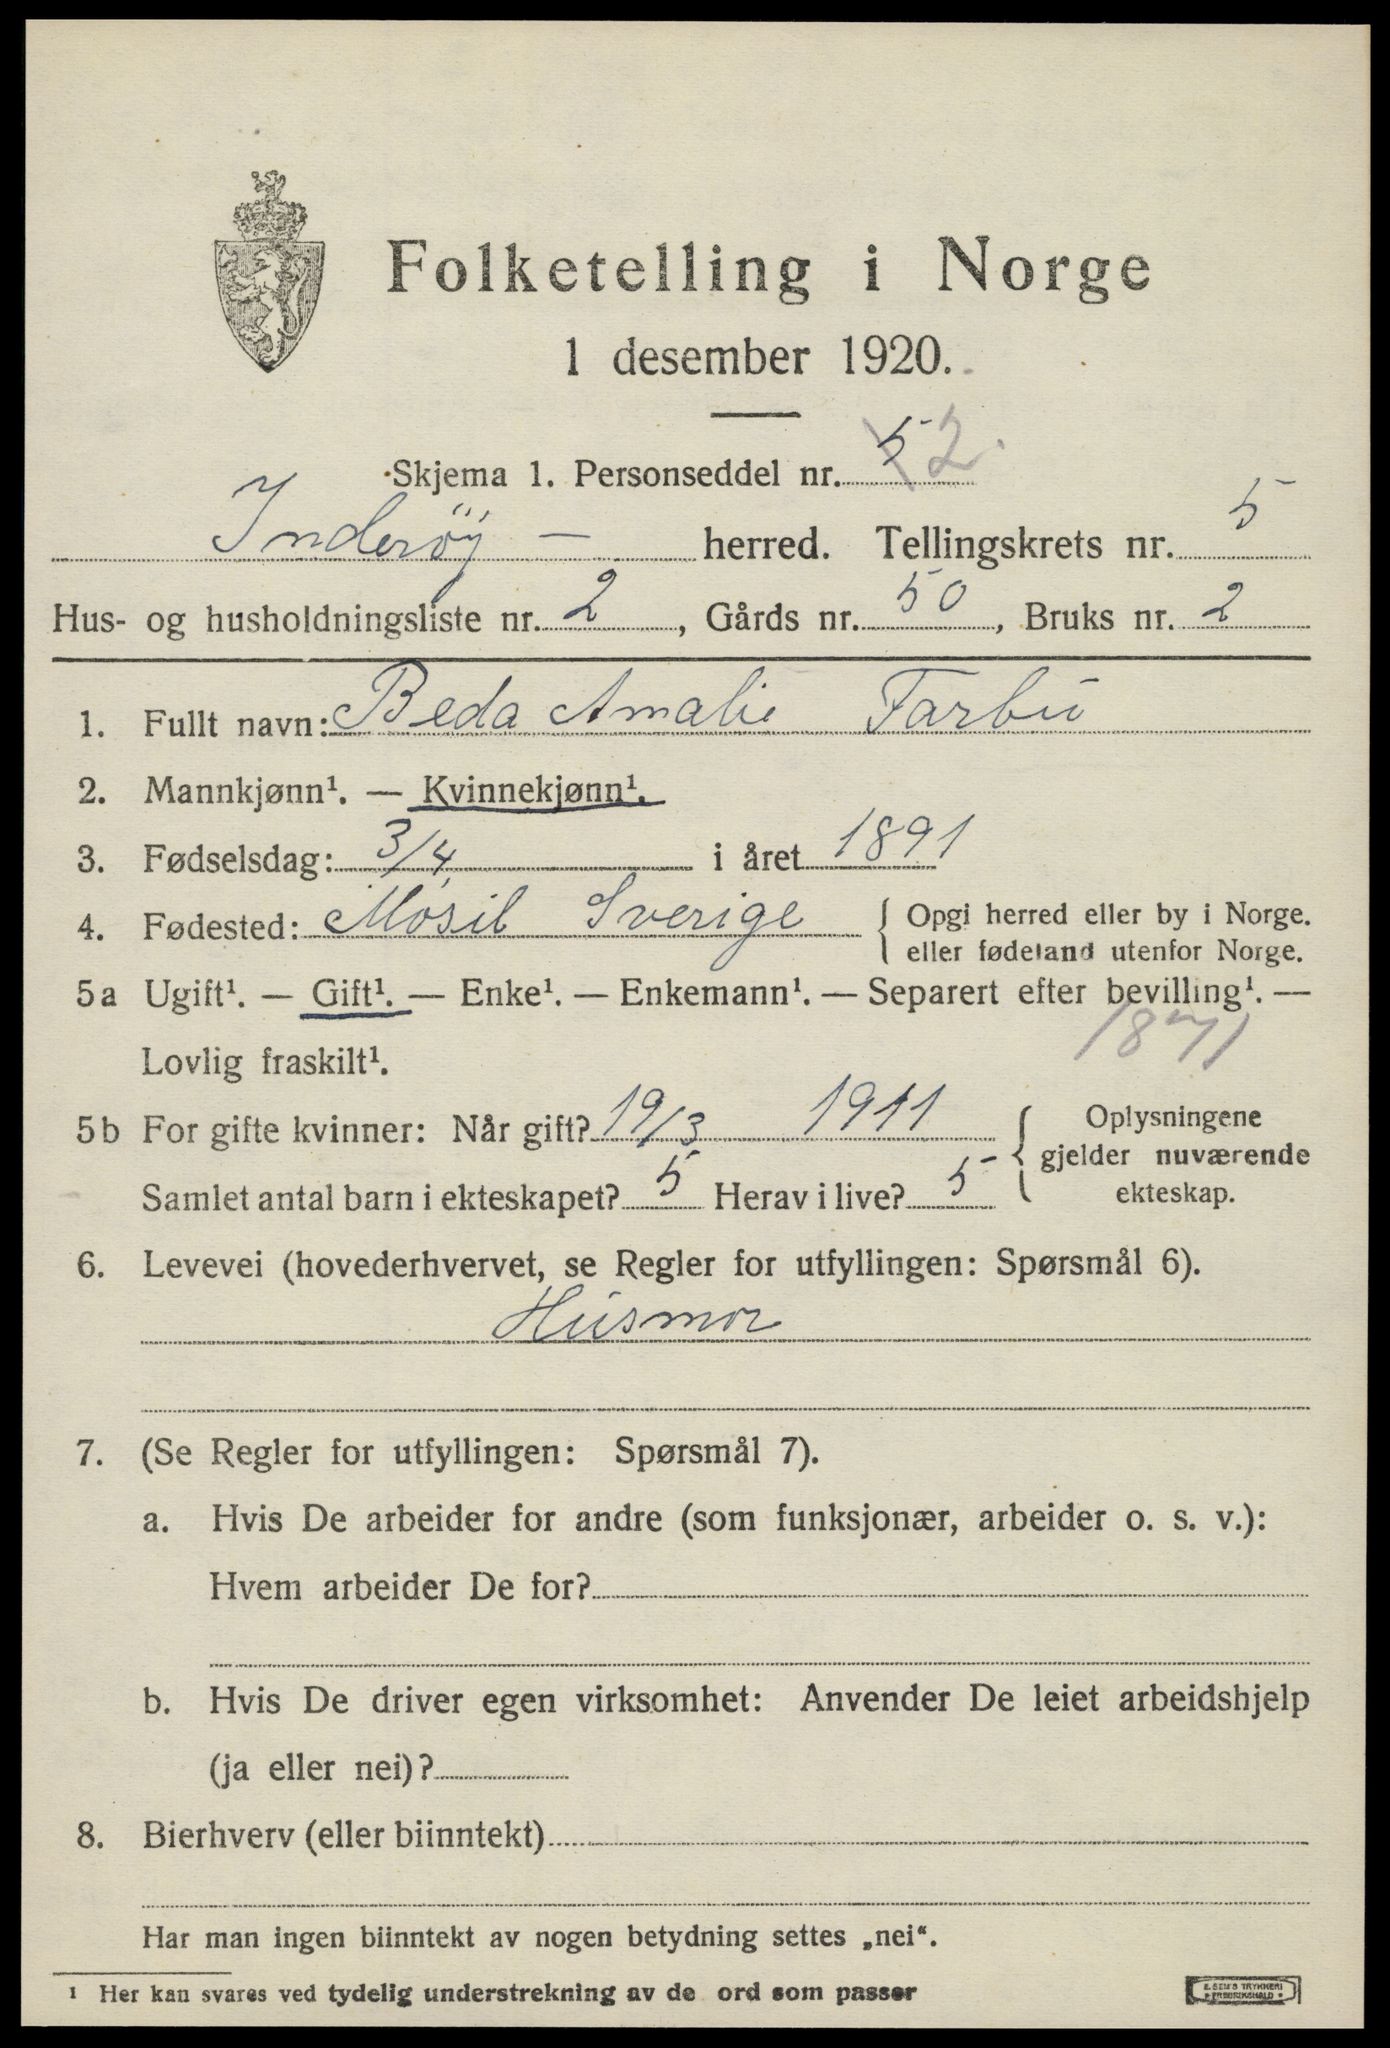 Folketelling i Norge
1 desember 1920.
Skjema 1. Personseddel nr. 5 2.
Inderøy — herred. Tellingskrets nr. 5
Hus- og husholdningsliste nr. 2, Gårds nr. 50, Bruks nr. 2
1. Fullt navn: Beda Amalie Farbu
2. Mannkjønn¹. — Kvinnekjønn¹.
3. Fødselsdag: 3/4 i året 1891
4. Fødested: Mösil Sverige { Opgi herred eller by i Norge.
eller fødeland utenfor Norge.
5a Ugift¹. — Gift¹. — Enke¹. — Enkemann¹. — Separert efter bevilling¹. —
Lovlig fraskilt¹.
5b For gifte kvinner: Når gift? 19/3 1911 { Oplysningene
gjelder nuværende
ekteskap.
Samlet antal barn i ekteskapet? 5 Herav i live? 5
6. Levevei (hovederhvervet, se Regler for utfyllingen: Spørsmål 6).
Husmor
7. (Se Regler for utfyllingen: Spørsmål 7).
a. Hvis De arbeider for andre (som funksjonær, arbeider o. s. v.):
Hvem arbeider De for?
b. Hvis De driver egen virksomhet: Anvender De leiet arbeidshjelp
(ja eller nei)?
8. Bierhverv (eller biinntekt)
Har man ingen biinntekt av nogen betydning settes „nei“.
¹ Her kan svares ved tydelig understrekning av de ord som passer